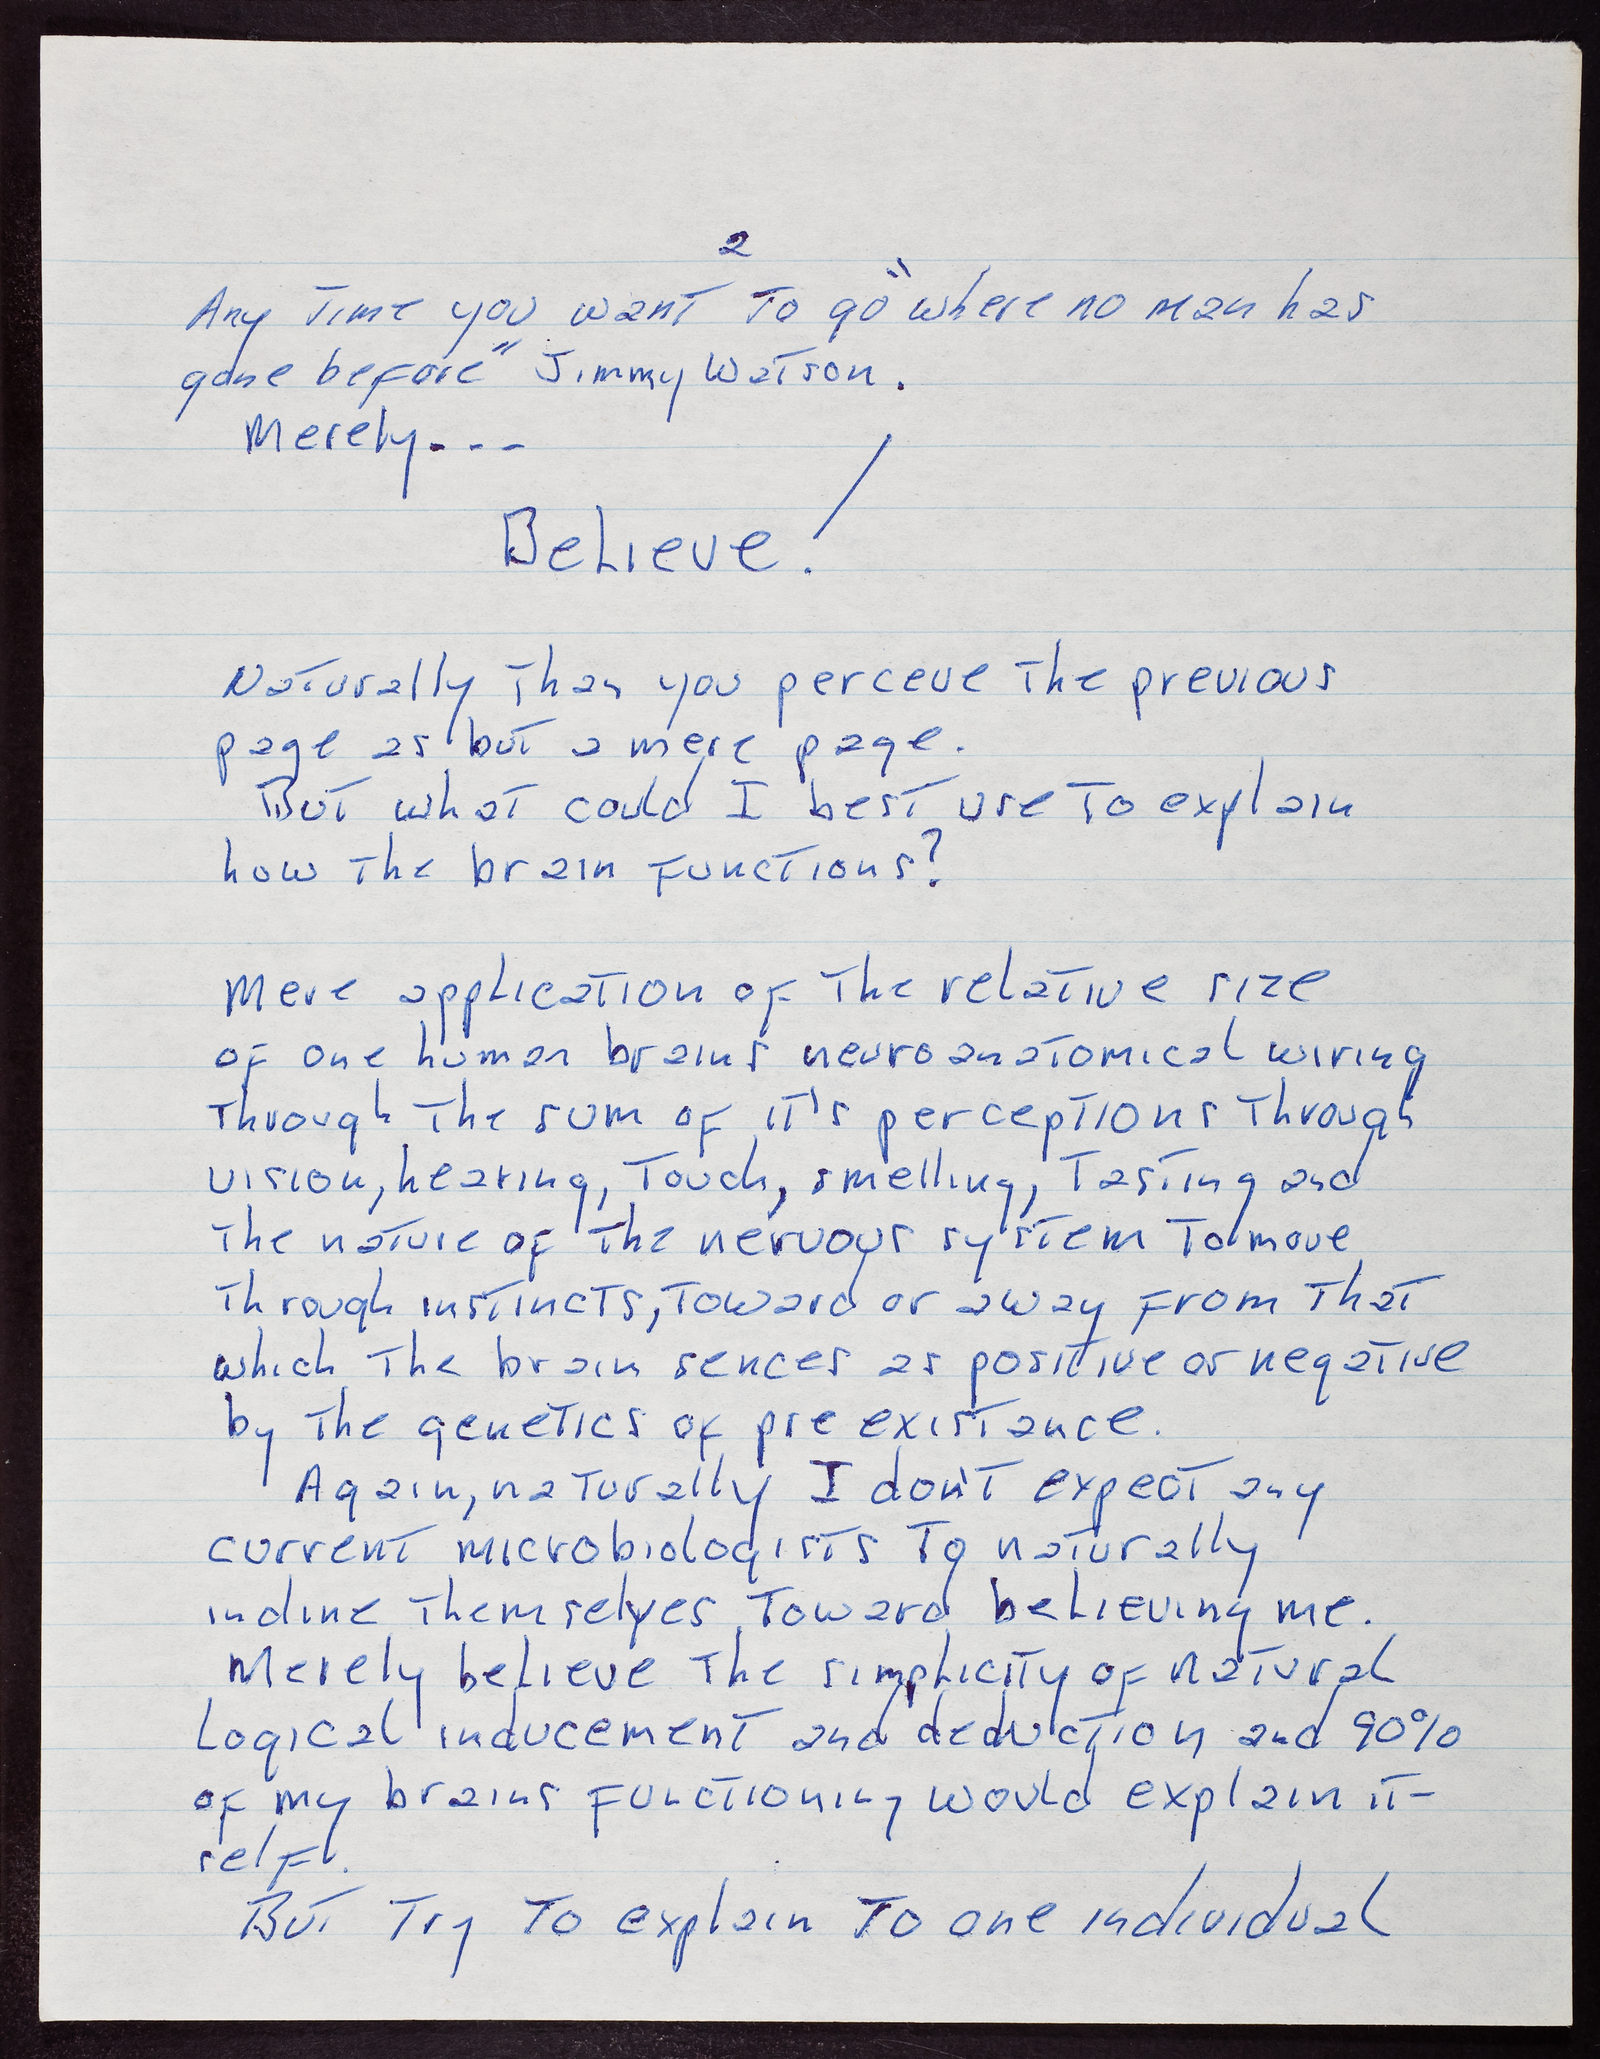 2
Any time you want to go "where no man has
gone before" Jimmy Watson.
Merely. - -
Believe!
Naturally than you perceve the previous
page as but a mere page.
But what could I best use to explain
how the brain functions?
Mere application of the relative size
of one human brains neuroanatomical wiring
through the sum of it's perceptions through
vision, hearing, touch, smelling, tasting and
the nature of the nervous system to move
through instincts, toward or away from that
which the brain sences as positive or negative
by the genetics of pre existance.
Again, naturally I don't expect any
current microbiologists to naturally
incline themselves toward believing me.
Merely believe the simplicity of natural
logical inducement and deduction and 90%
of my brains functioning would explain it-
self.
But try to explain to one individual